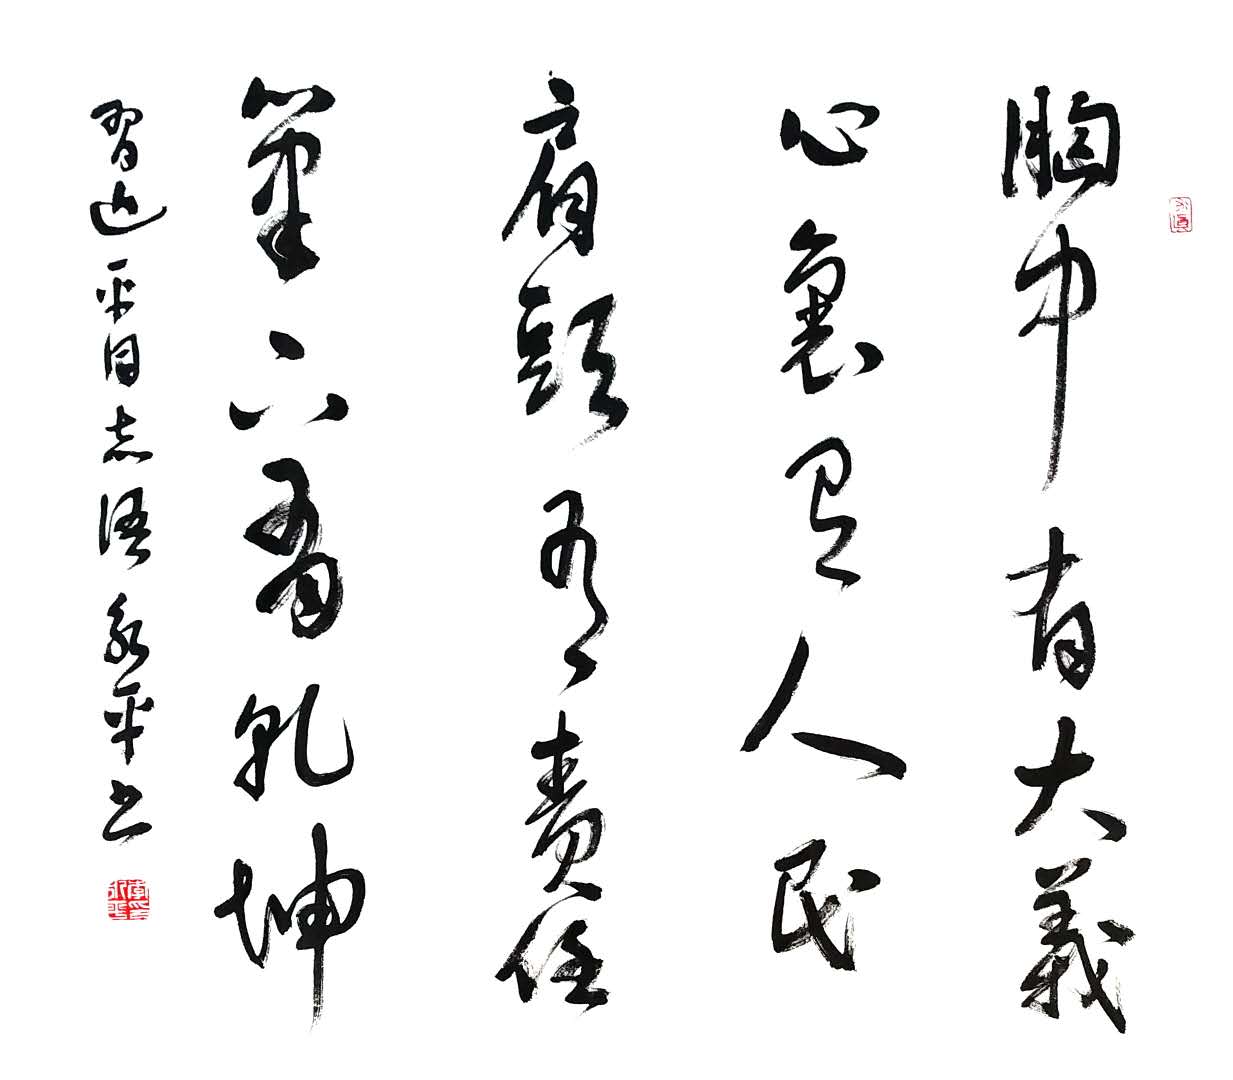 胸中有大義
心裏有人民
肩頭有責任
筆下有乾坤
習近平同志語永平書